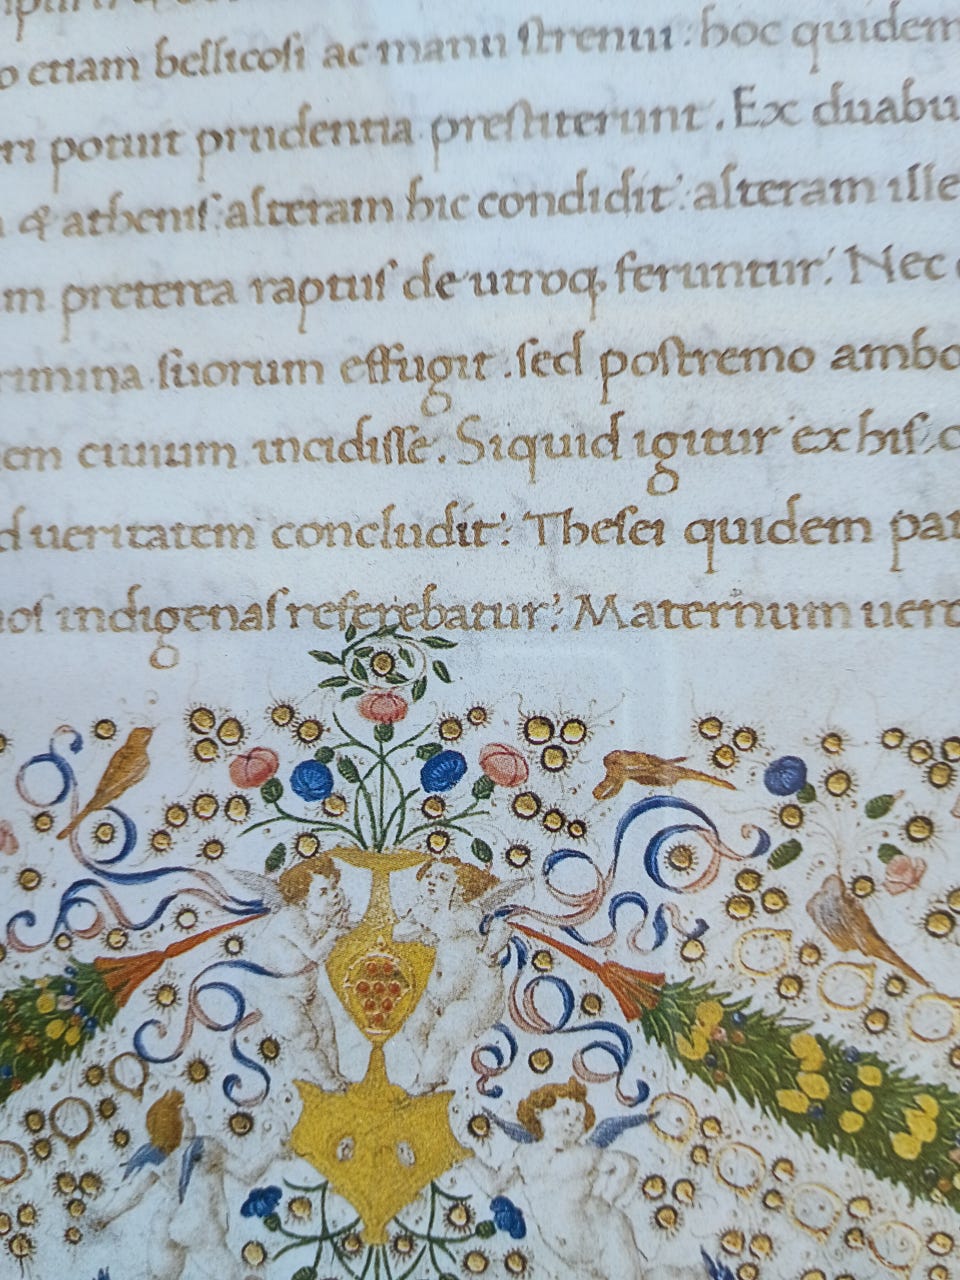 etiam bellicosi ac manu strenui: hoc quidem
potuit prudentia prestiterunt. Ex duabu
& athenis: alteram hic condidit: alteram ille
m preterea raptus de utroq; feruntur: Nec
rimina suorum effugit. sed postremo ambo
em ciuium incidisse. Siquid igitur ex his
d ueritatem concludit: Thesei quidem pat
nos indigenas referebatur: Maternum uero